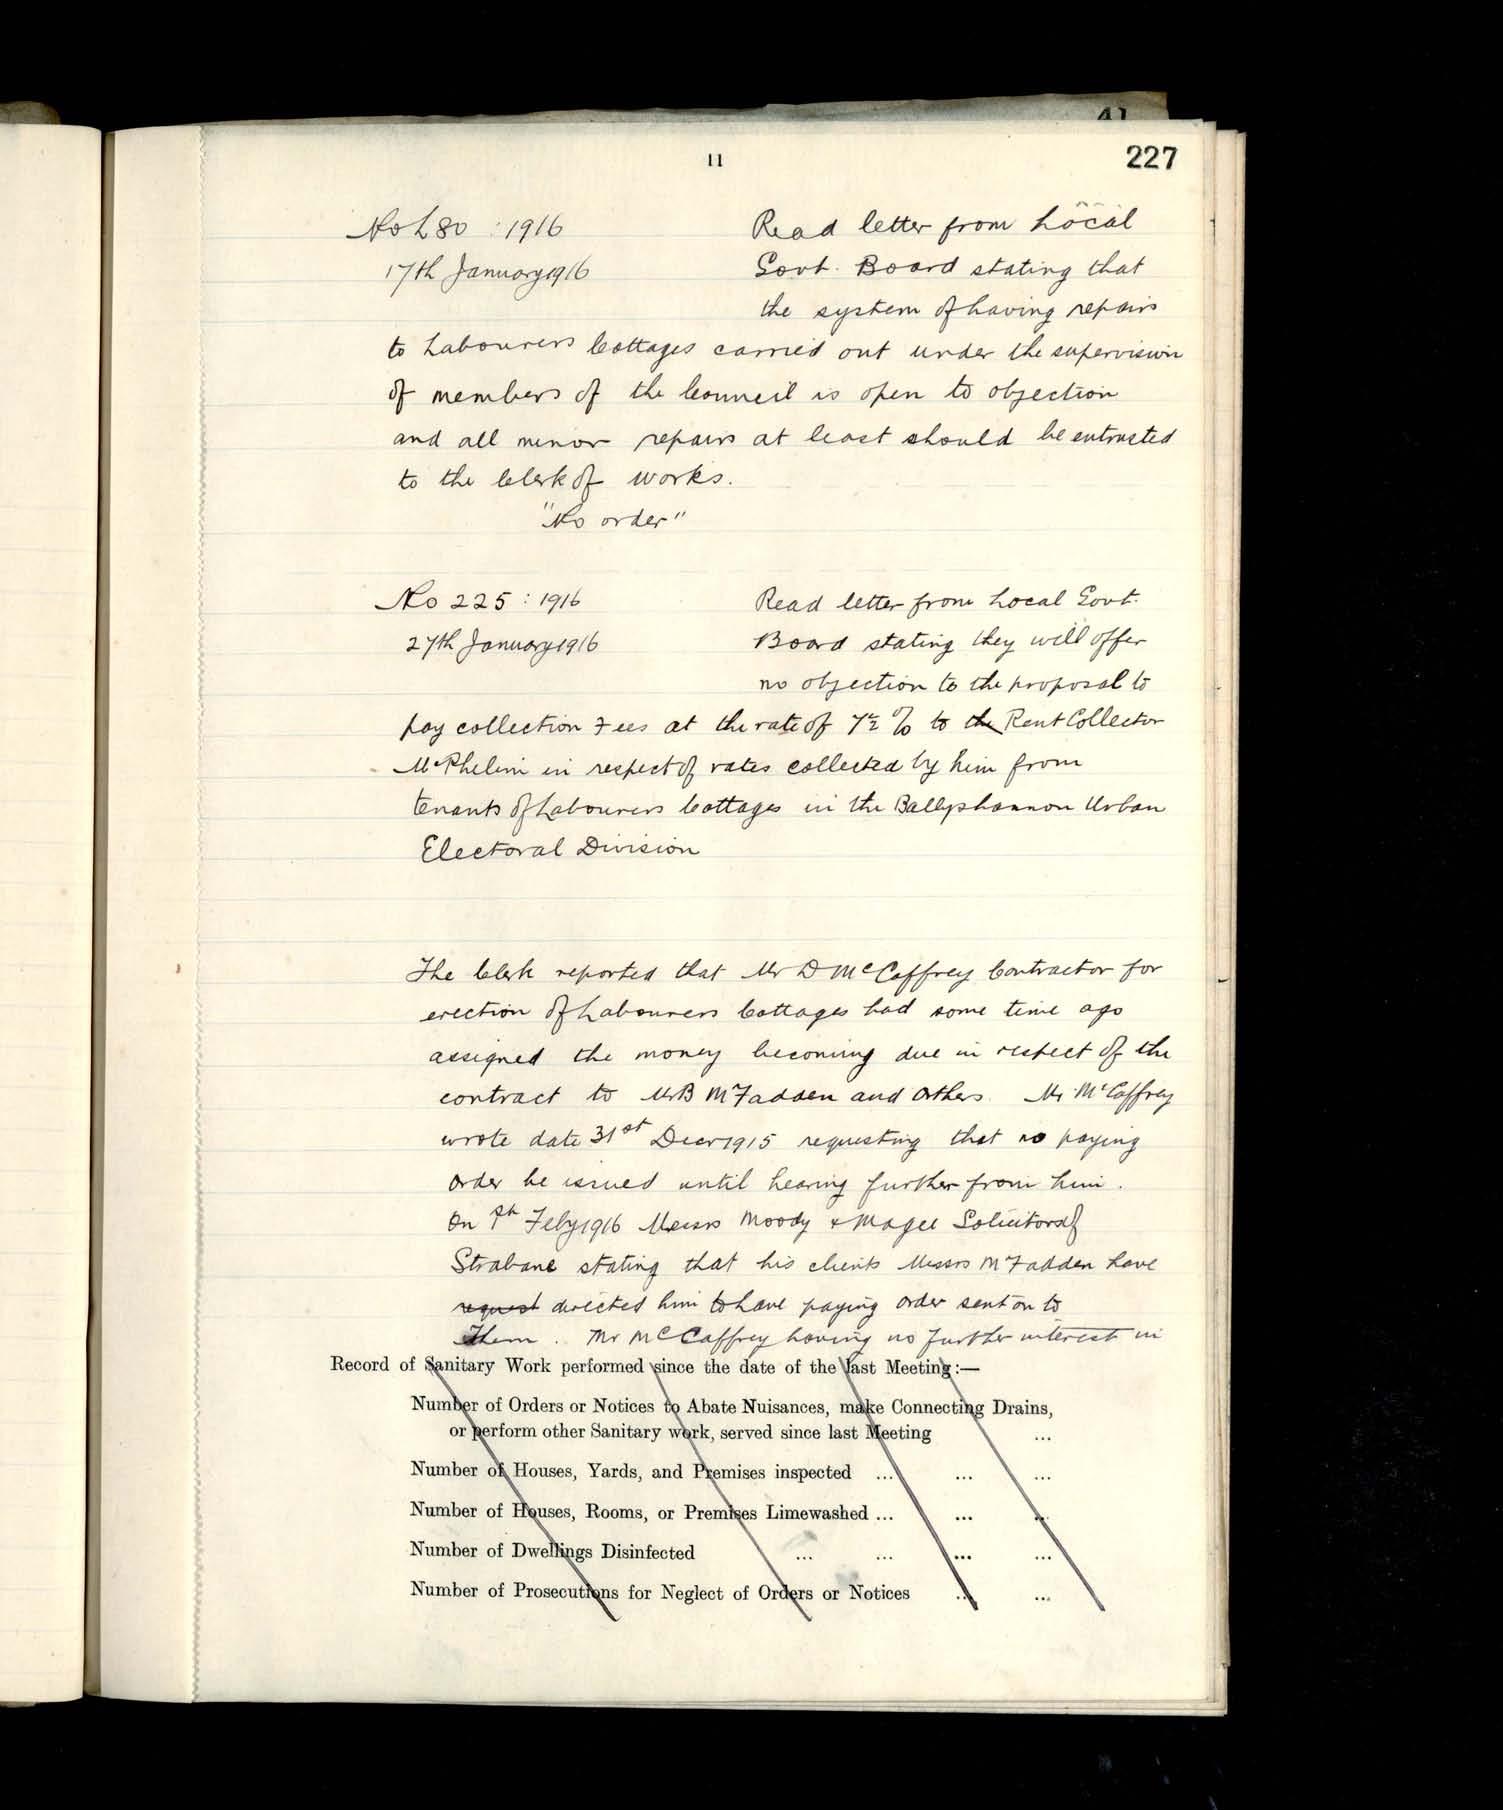 41
11
227
No L80 : 1916
17th January 1916
Read letter from Local
Govt. Board stating that
the system of having repairs
to Labourers Cottages carried out under the supervision
of members of the Council is open to objection
and all minor repairs at least should be entrusted
to the Clerk of works.
"No order"
No 225 : 1916
27th January 1916
Read letter from Local Govt.
Board stating they will offer
no objection to the proposal to
pay collection Fees at the rate of 7½ % to the Rent Collector
McPhelim in respect of rates collected by him from
tenants of Labourers Cottages in the Ballyshannon Urban
Electoral Division
The Clerk reported that Mr D McCaffrey Contractor for
erection of Labourers Cottages had some time ago
assigned the money becoming due in respect of the
contract to Mr B McFadden and others. Mr McCaffrey
wrote date 31st Decr 1915 requesting that no paying
order be issued until hearing further from him.
On Feby 1916 Messrs Moody & Magee Solicitors of
Strabane stating that his clients Messrs McFadden have
request directed him to have paying order sent on to
Them. Mr McCaffrey having no further interest in
Record of Sanitary Work performed since the date of the last Meeting:—
Number of Orders or Notices to Abate Nuisances, make Connecting Drains,
or perform other Sanitary work, served since last Meeting ...
Number of Houses, Yards, and Premises inspected ... ... ...
Number of Houses, Rooms, or Premises Limewashed ... ... ...
Number of Dwellings Disinfected ... ... ... ...
Number of Prosecutions for Neglect of Orders or Notices ... ...